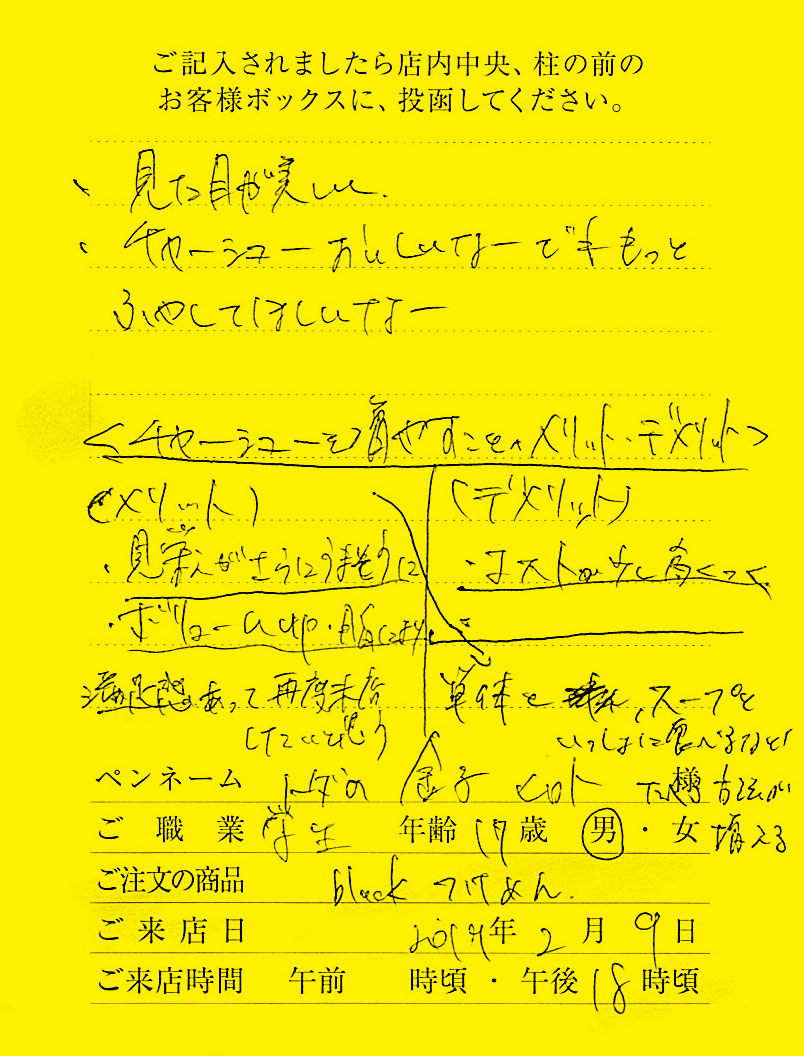 ご記入されましたら店内中央、柱の前の
お客様ボックスに、投函してください。
、見た目が美しい.
、チャーシューおいしいなーでももっと
ふやしてほしいなー
<チャーシューを増やすことのメリット・デメリット>
(メリット)
・見栄えがさらにうまそうに
・ボリュームup・脂により
満足感あって再度来店
したいと思う
単体と スープと
いっしょに食べるなど
食べ方が
増える
(デメリット)
・コストが少し高くつく
ペンネーム 金子 様
ご職業 学生 年齢 17歳 男・女
ご注文の商品 black つけめん.
ご来店日 2017年 2月 9日
ご来店時間 午前 時頃・午後 18時頃